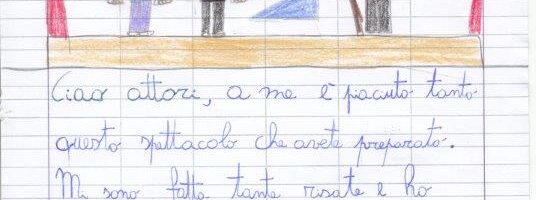 Ciao attori, a me è piaciuto tanto
questo spettacolo che avete preparato.
Mi sono fatta tante risate e ho